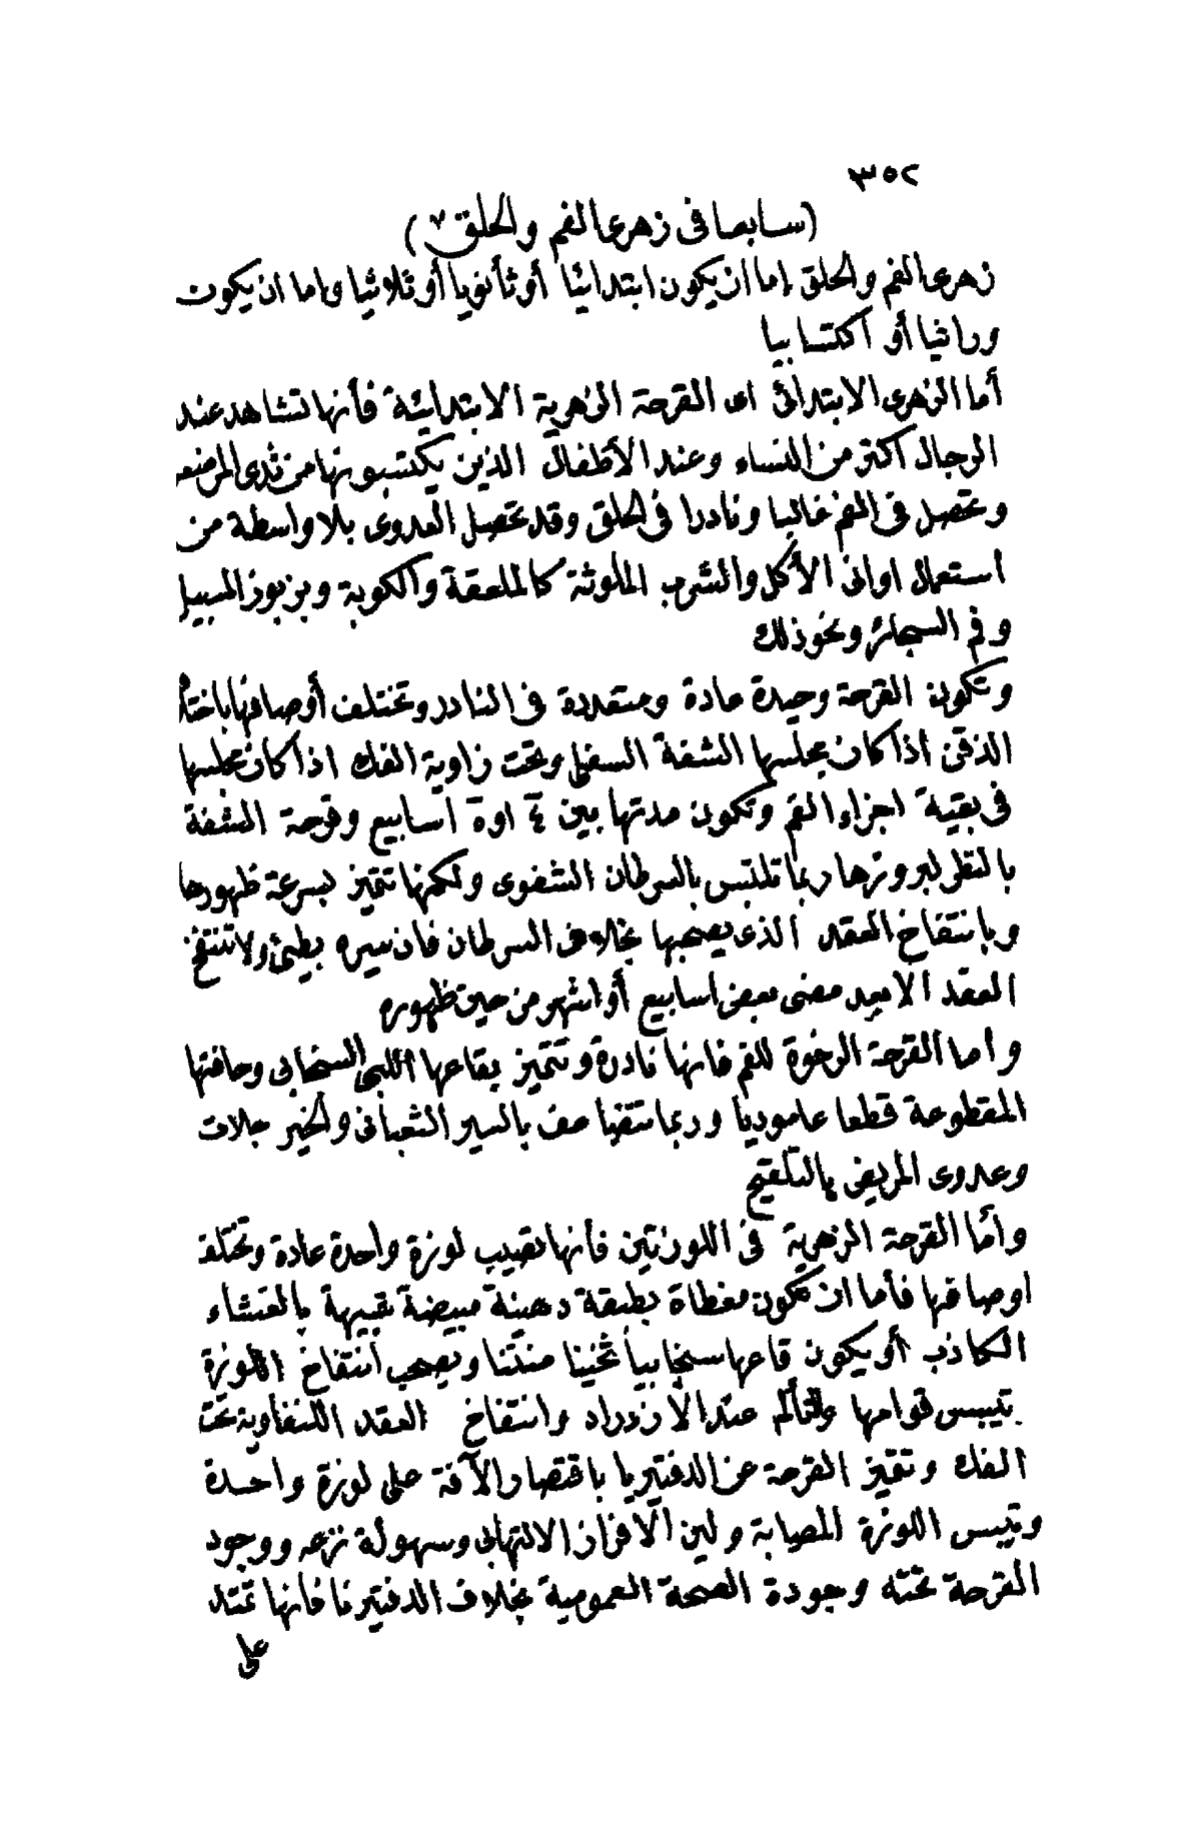 ٣٥٢
(سابعا فى زهرى الفم والحلق ٧)
زهرى الفم والحلق إما ان يكون ابتدائيا أو ثانويا أو ثلاثيا واما ان يكون
وراثيا أو اكتسابيا
أما الزهرى الابتدائى اى القرحة الزهرية الابتدائية فأنها تشاهد عند
الرجال اكثر من النساء وعند الأطفال الذين يكتسبونها من ثدى المرضعه
وتحصل فى الفم غالبا ونادرا فى الحلق وقد تحصل العدوى بلا واسطة من
استعمال اوانى الأكل والشرب الملوثة كالملعقة والكوبة وبزبوز السبيل
وفم السجائر ونحو ذلك
وتكون القرحة وحيدة عادة ومتعددة فى النادر وتختلف أوصافها باختلا
الذقن اذا كان مجلسها الشفة السفلى وتحت زاوية الفك اذا كان مجلسها
فى بقية اجزاء الفم وتكون مدتها بين ٤ او ٥ أسابيع وقرحة الشفة
بالنظر لبروزها ربما تلتبس بالسرطان الشفوى ولكنها تتميز بسرعة ظهورها
وبانتفاخ العقد الذى يصحبها بخلاف السرطان فان سيره بطيئ ولا تنتفخ
العقد الا بعد مضى بعض اسابيع أو اشهر من حين ظهوره
وأما القرحة الرخوة للفم فانها نادرة وتتميز بقاعها اللبنى السنجابى وحافتها
المقطوعة قطعا عاموديا وربما تتضاعف بالسير الثعبانى
وعدوى المريض بالتلقيح
وأما القرحة الزهرية فى اللوزتين فأنها تصيب لوزة واحدة عادة وتختلف
اوصافها فأما ان تكون مغطاة بطبقة دهنية مبيضة شبيهة بالغشاء
الكاذب أو يكون قاعها سنجابيا ثخينا منتنا ويصحب انتفاخ اللوزة
تيبس قوامها والتألم عند الأزدراد وانتفاخ العقد اللنفاوية تحت
الفك وتتميز القرحة عن الدفتيريا باقتصار الآفة على لوزة واحدة
وتيبس اللوزة المصابة ولين الأفراز الالتهابى وسهولة نزعه ووجود
القرحة تحته وجودة الصحة العمومية بخلاف الدفتيريا فانها تمتد
على